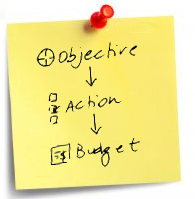 Objective
Action
Budget